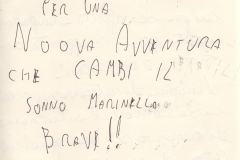 PER UNA
NUOVA AVVENTURA
CHE CAMBI IL
SONNO MARINELLA
BRAVE!!